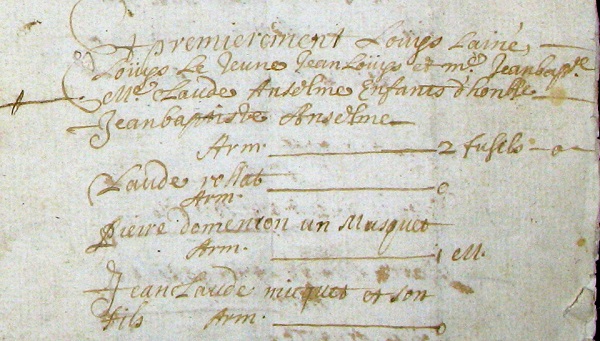 premierement Louys Lainé,
Louys Le Jeune Jean Louys et me. Jean bapte
Me. Claude Anselme Enfants dhonble
Jean baptiste Anselme
Arm. 2 fusils 0
Claude rollat
Arm. 0
Pierre domenion un Musquet
Arm. 1 M.
Jean Claude micquet et son
fils Arm. 0